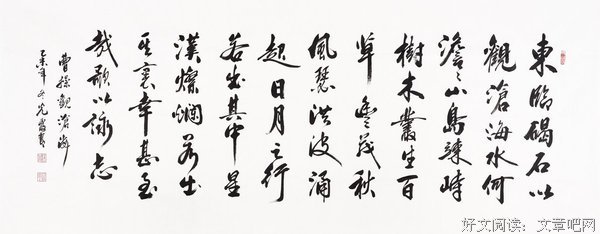 東臨碣石以
觀滄海水何
澹〻山島竦峙
樹木叢生百
草豐茂秋
風瑟洪波涌
起日月之行
若出其中星
漢燦爛若出
其裏幸甚至
哉歌以詠志
曹操觀滄海
乙未年
好文阅读：文章吧网